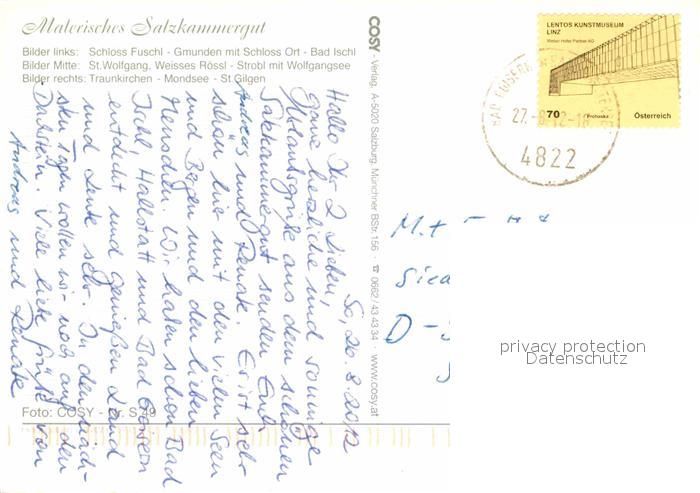 Malerisches Salzkammergut
Bilder links: Schloss Fuschl - Gmunden mit Schloss Ort - Bad Ischl
Bilder Mitte: St.Wolfgang, Weisses Rössl - Strobl mit Wolfgangsee
Bilder rechts: Traunkirchen - Mondsee - St.Gilgen
So, 26.8.2012
Hallo Ihr 2 Lieben,
ganz herzliche und sonnige
Urlaubsgrüße aus dem schönen
Salzkammergut senden Euch
Andreas und Renate. Es ist sehr
schön hier mit den vielen Seen
und Bergen und den lieben
Menschen. Wir haben schon Bad
Ischl Hallstatt und Bad Goisern
entdeckt und genießen Land
und Leute sehr. In den näch-
sten Tagen wollen wir noch auf den
Dachstein. Viele liebe Grüße von
Andreas und Renate
Foto: COSY - Nr. S 49
COSY - Verlag, A-5020 Salzburg, Münchner BStr. 156 · ☎ 0662/43 43 34 · www.cosy.at
LENTOS KUNSTMUSEUM
LINZ
Weber Hofer Partner AG
70 Prohaska Österreich
27.-8.12-18
4822
M. +
D -
privacy protection
Datenschutz